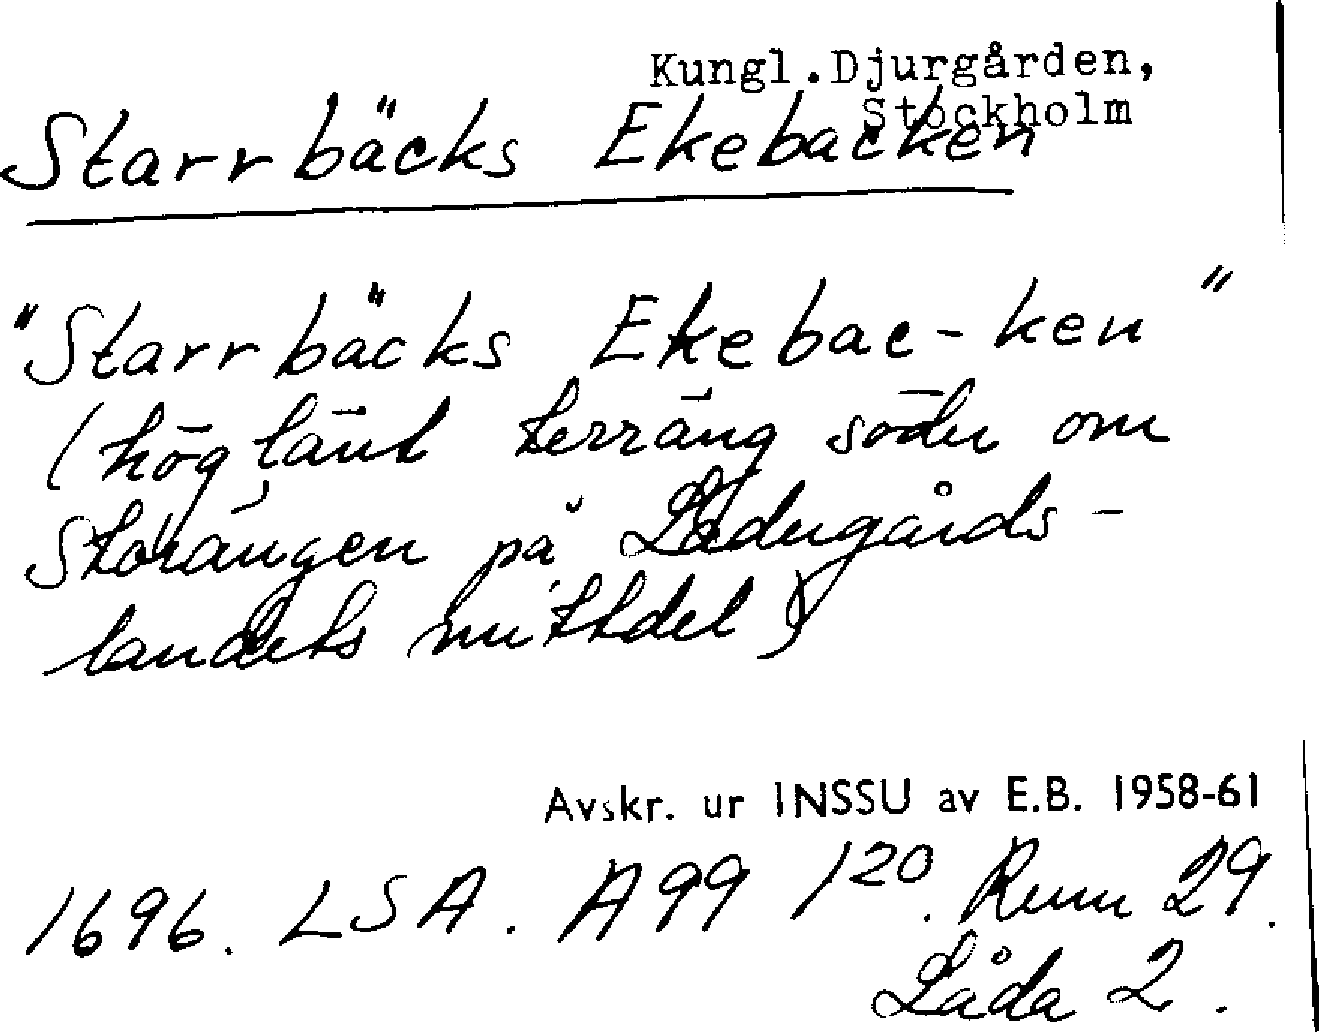 Kungl.Djurgården,
Stockholm
Starrbäcks Ekebacken
"Starrbäcks Ekebac-ken"
(höglänt terräng söder om
Storängen på Ladugårds-
landets mittdel)
Avskr. ur INSSU av E.B. 1958-61
1696. LSA. A99 120. Rum 29.
Låda 2.